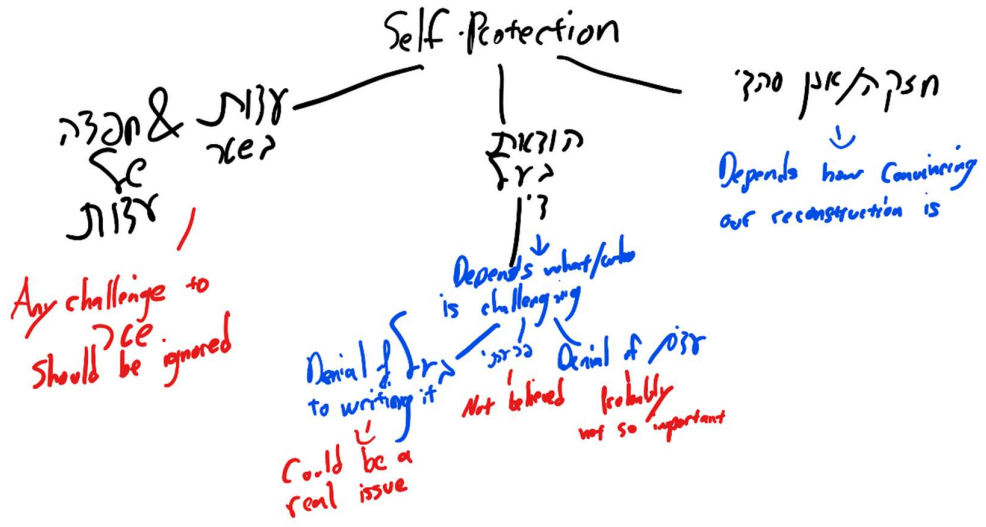 Self-Protection
עדות & חפצה
בשטר
של
עדות
Any challenge to
שטר
should be ignored
הודאת
בעל
דין
Depends what/who
is challenging
Denial of
to writing it
Could be a
real issue
פרעתי
Not believed
Denial of עדים
Probably
not so important
חזקה/אנן סהדי
Depends how convincing
our reconstruction is